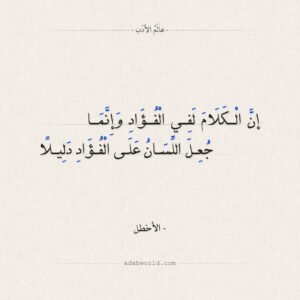 - عالَمُ الأدَب -
إنَّ الْـكَلَامَ لَفِـي الْفُـؤَادِ وَإنَّمَـا
جُعِلَ اللِّسَانُ عَلَـى الْفُـؤَادِ دَلِيـلًا
- الأخطل
adabworld.com